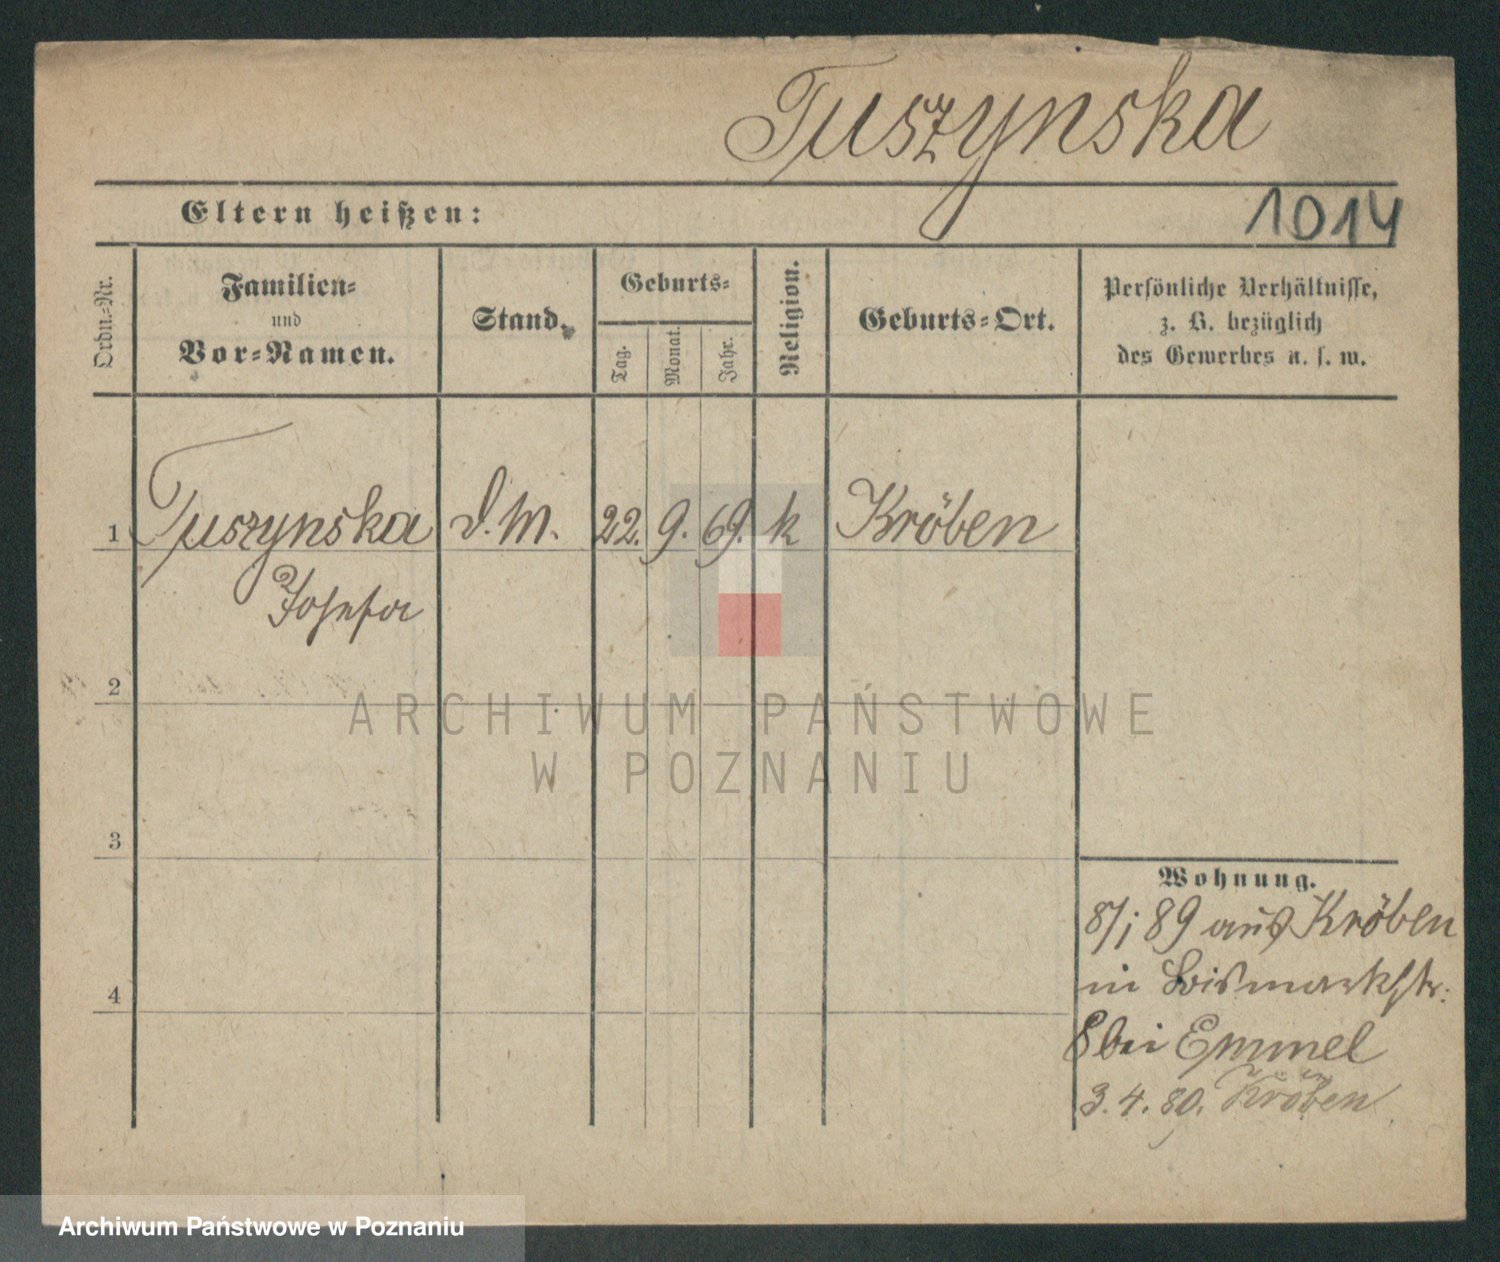 Tuszynska
1014
Eltern heißen:
Ordn.-Nr.
Familien-
und
Vor-Namen.
Stand.
Geburts-
Tag.
Monat.
Jahr.
Religion.
Geburts-Ort.
Persönliche Verhältnisse,
z. B. bezüglich
des Gewerbes u. s. w.
1 Tuszynska D. M. 22. 9. 69. k Kröben
Josefa
2
3
4
ARCHIWUM PAŃSTWOWE
W POZNANIU
Wohnung.
8/1 89 aus Kröben
in Bismarckstr.
8 bei Emmel
3. 4. Kröben
Archiwum Państwowe w Poznaniu